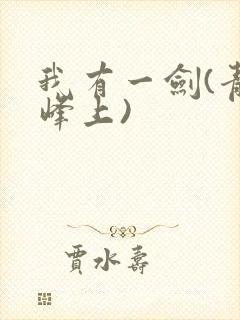 我有一劍(青
峰上)
賈水壽